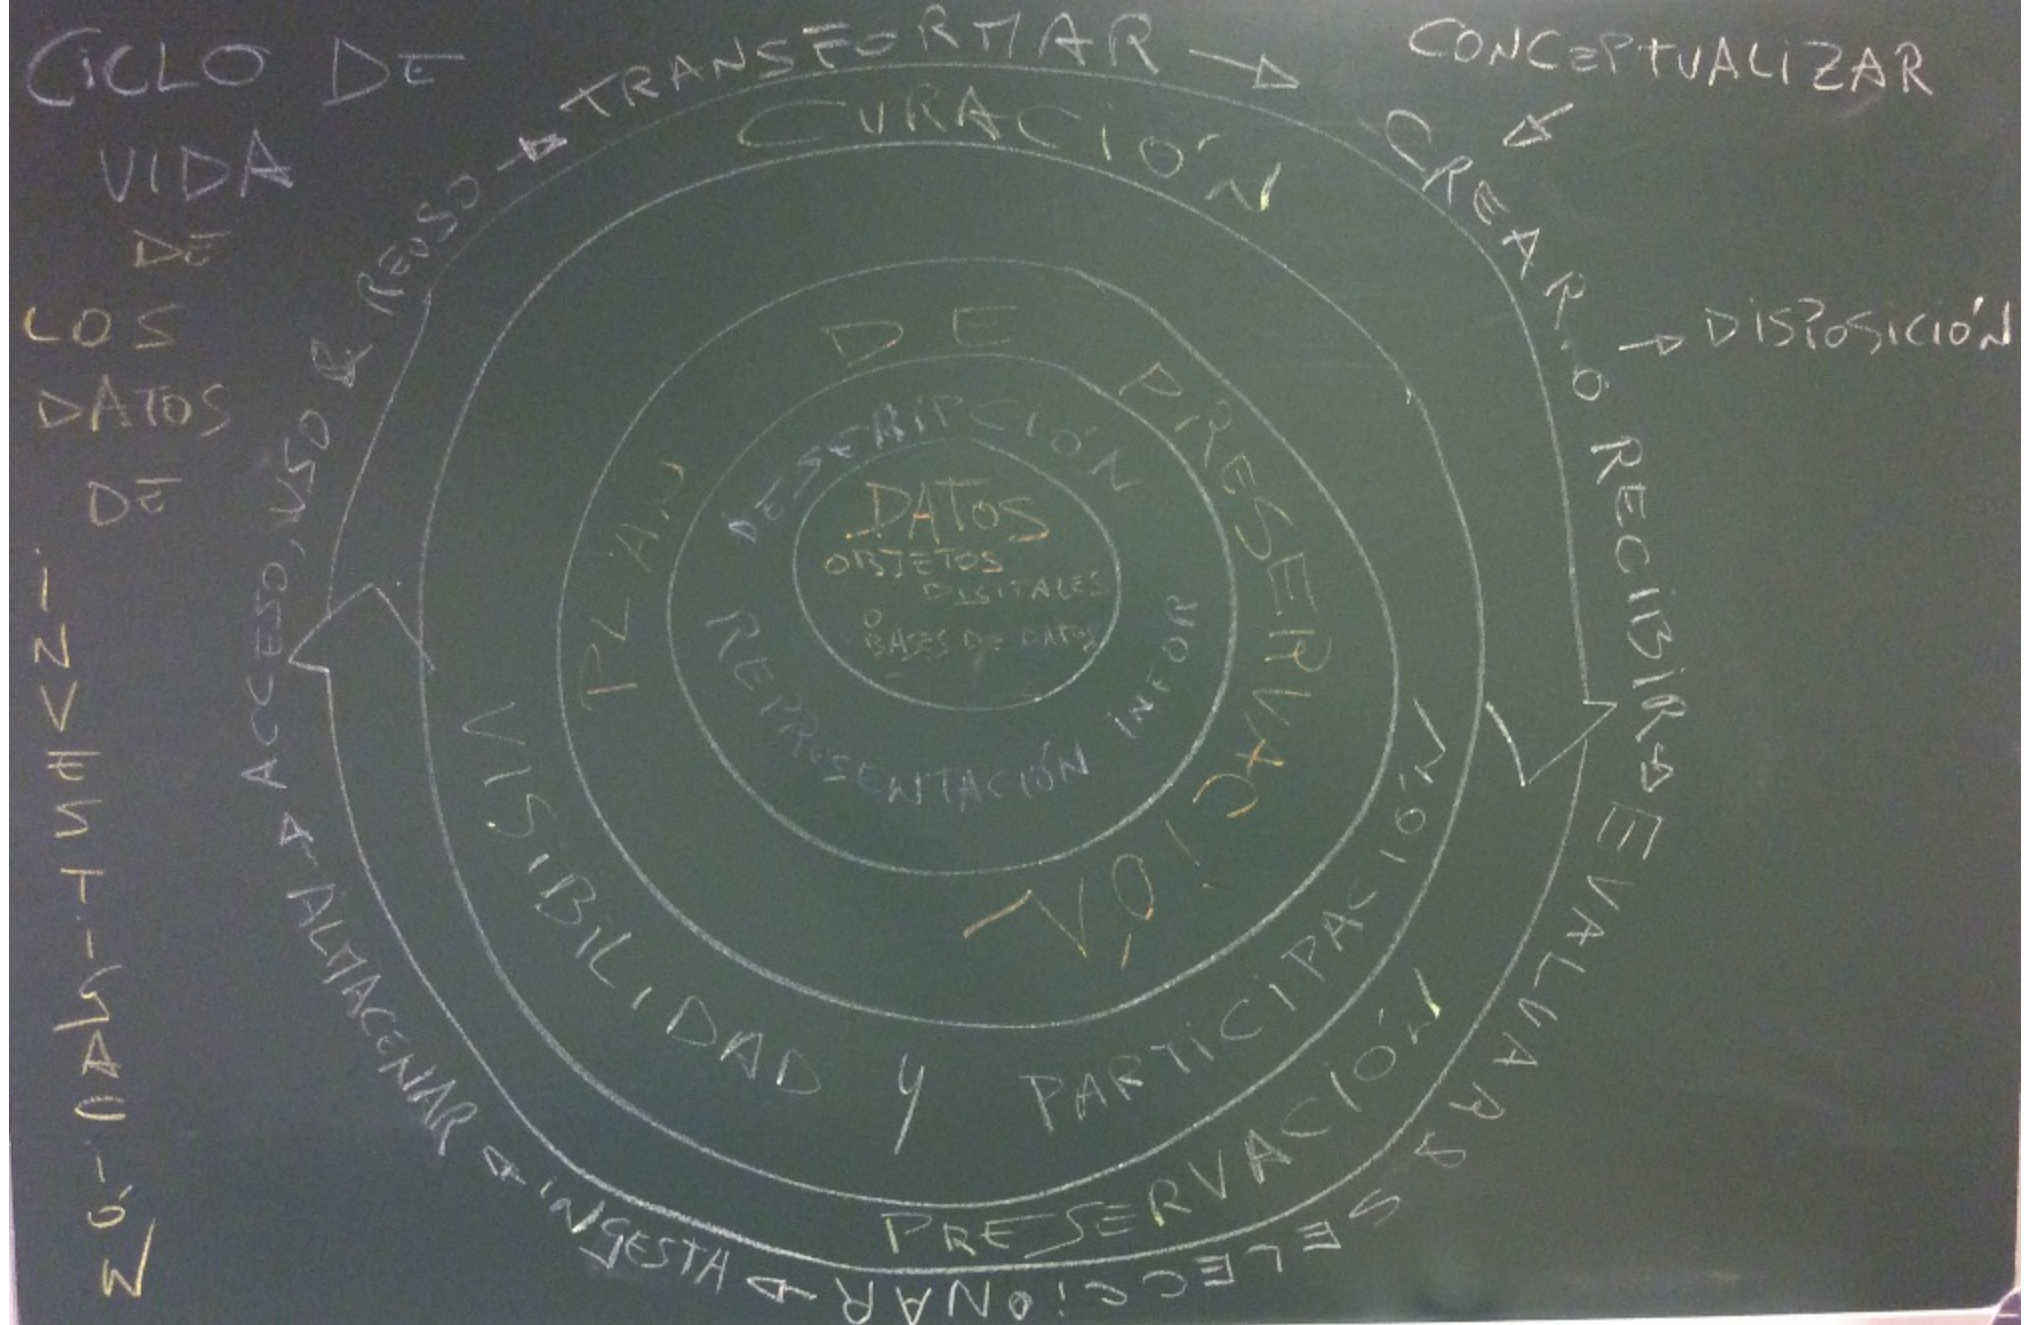 CICLO DE
VIDA
DE
LOS
DATOS
DE
INVESTIGACIÓN
TRANSFORMAR
CONCEPTUALIZAR
CREAR Ó RECIBIR
DISPOSICIÓN
EVALUAR &
SELECCIONAR
INGESTA
ALMACENAR
ACCESO, USO & REUSO
CURACIÓN
PRESERVACIÓN
VISIBILIDAD Y PARTICIPACIÓN
PLAN DE PRESERVACIÓN
DESCRIPCIÓN
REPRESENTACIÓN INFOR
DATOS
OBJETOS
DIGITALES
O
BASES DE DATOS